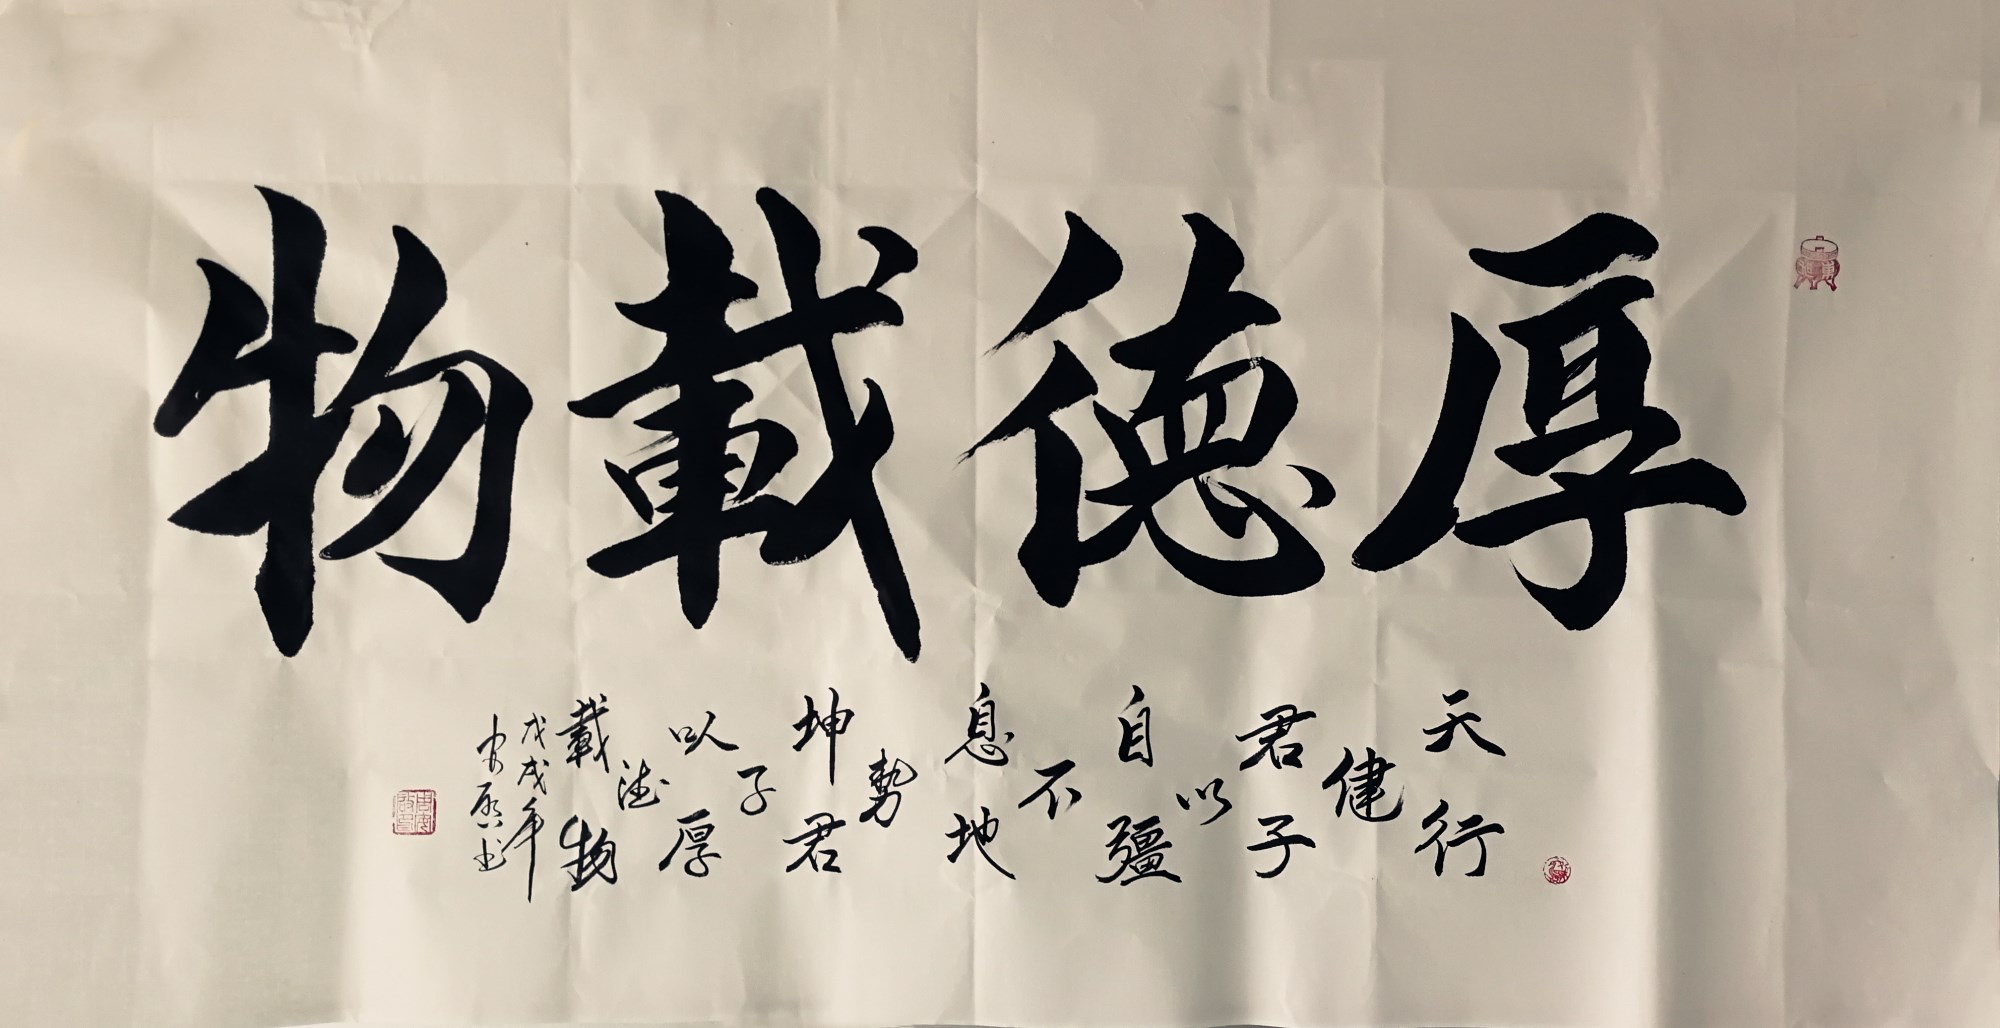 厚德載物
天行
健
君子
以
自彊
不
息地
勢
坤君
子
以厚
德
載物
戊戌年
安启书